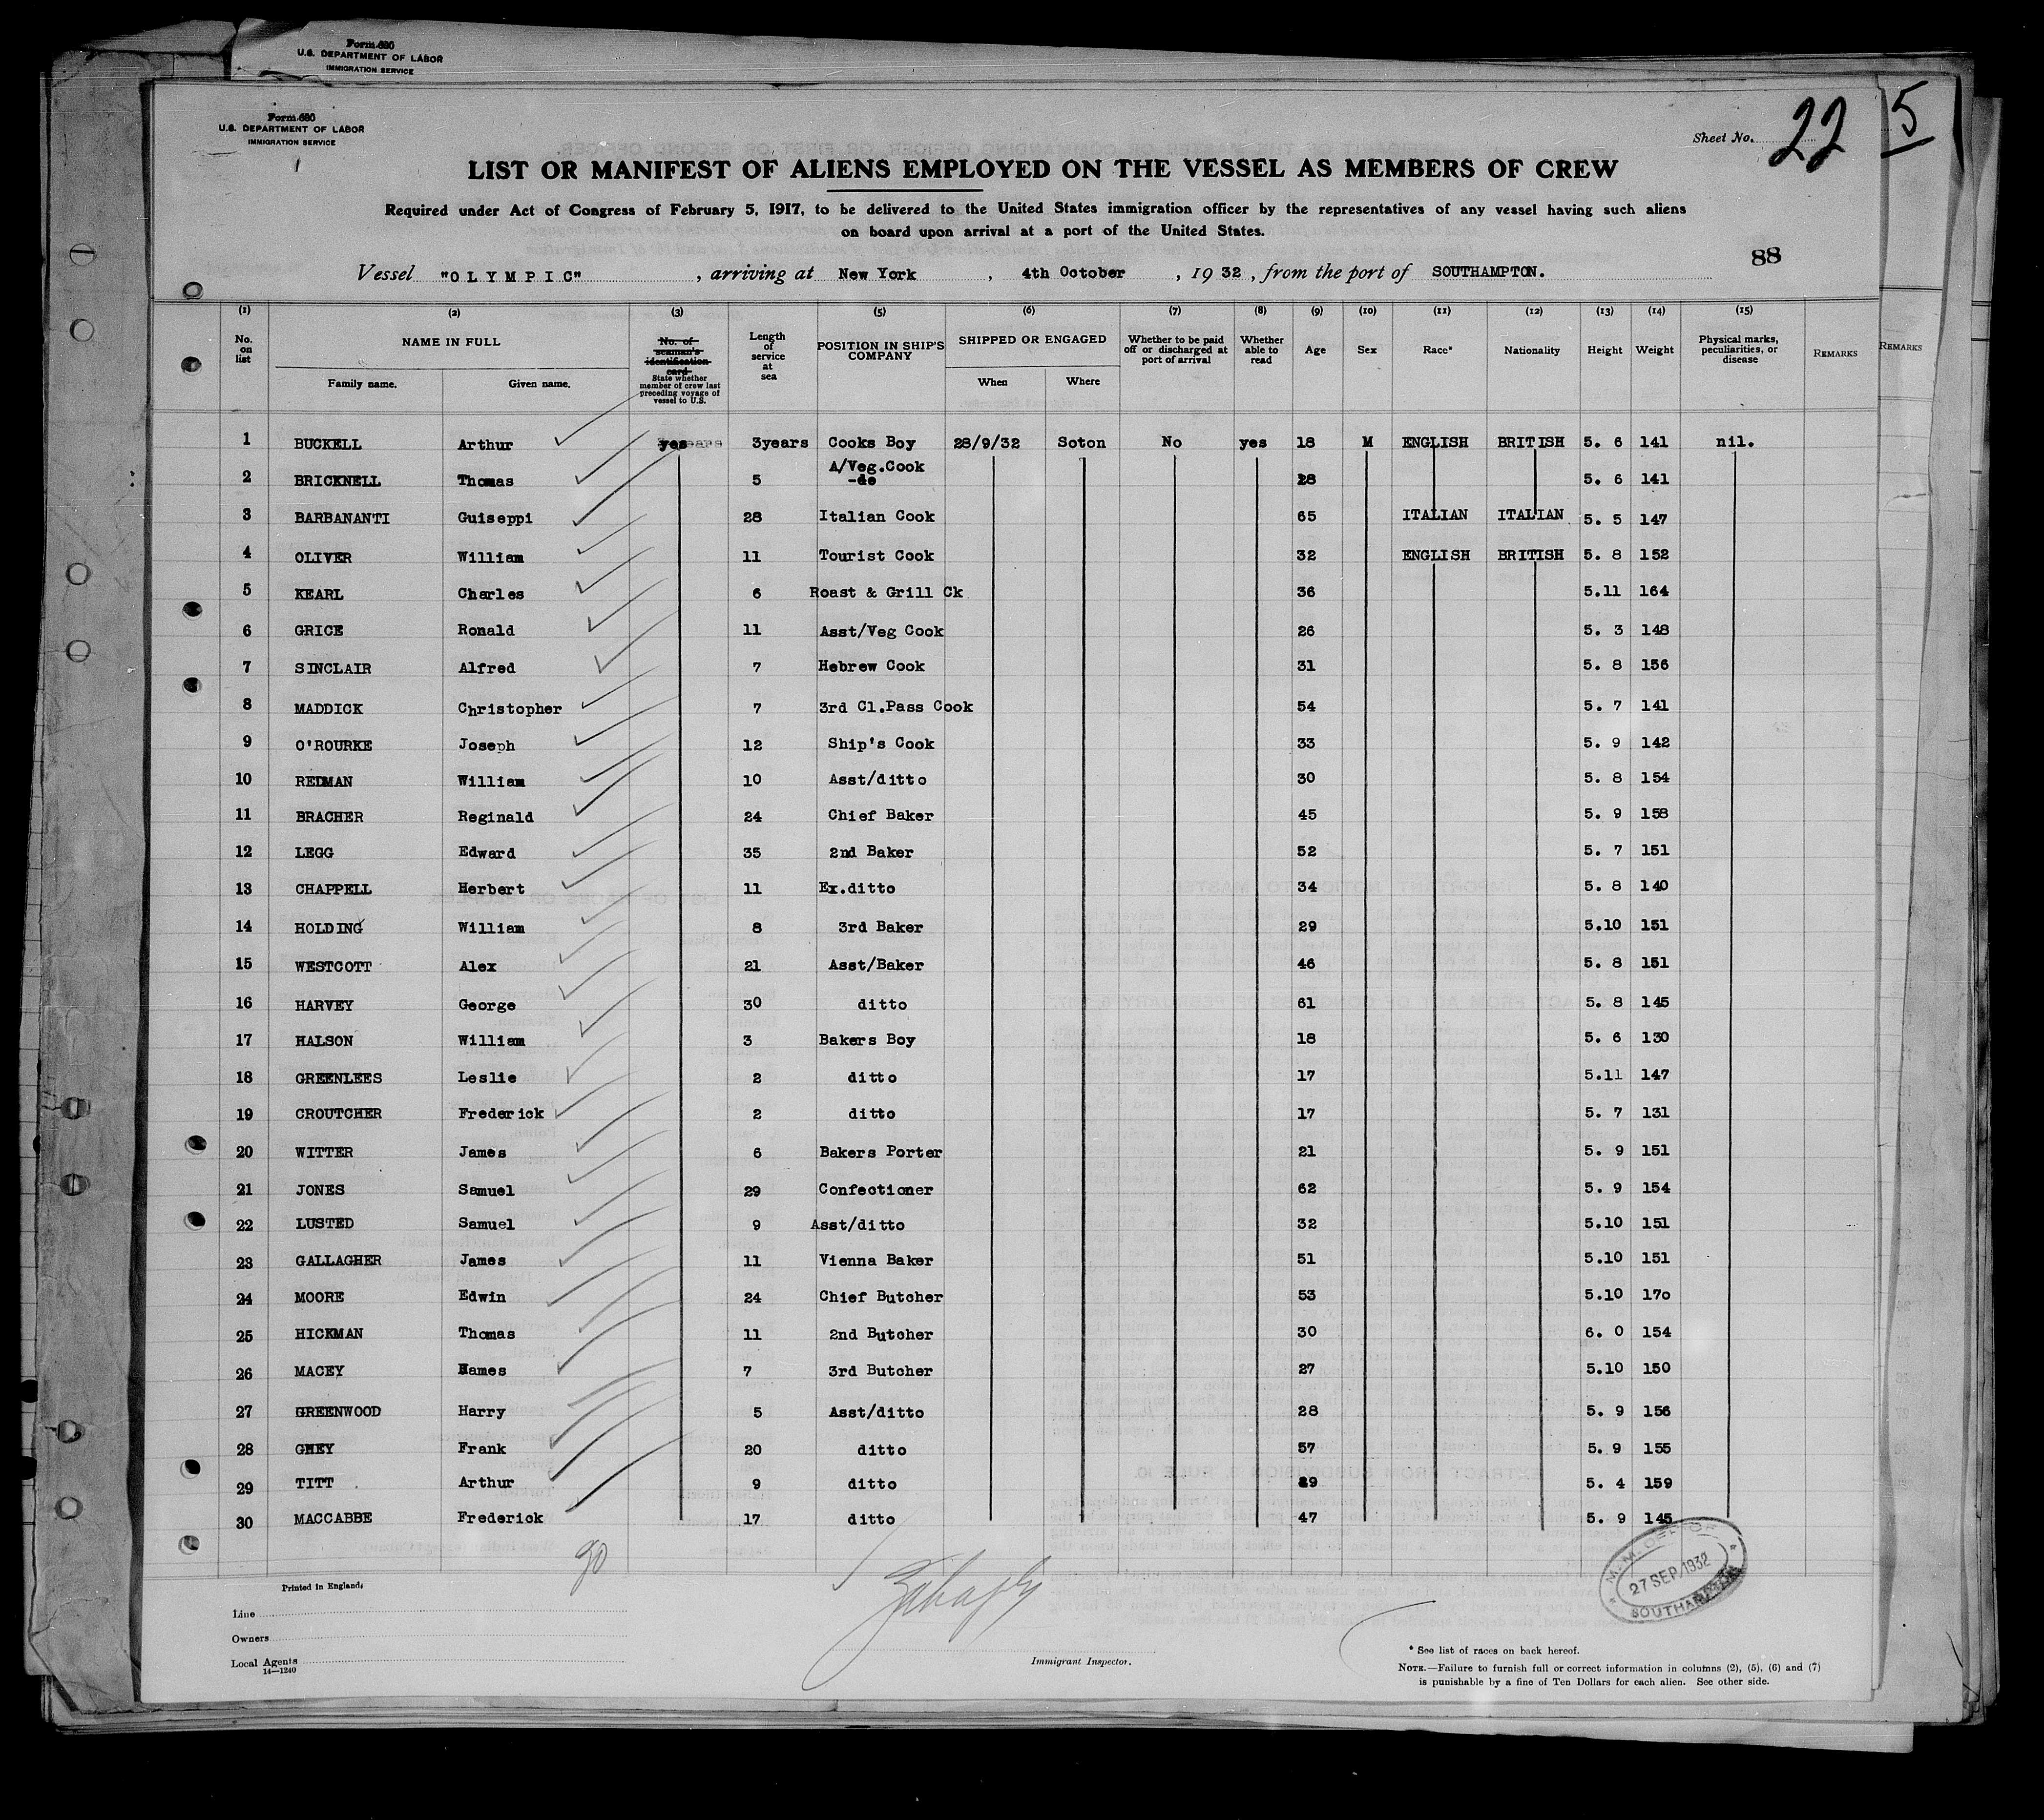 Form 680
U.S. DEPARTMENT OF LABOR
IMMIGRATION SERVICE
Form 680
U.S. DEPARTMENT OF LABOR
IMMIGRATION SERVICE
Sheet No. 22
5
LIST OR MANIFEST OF ALIENS EMPLOYED ON THE VESSEL AS MEMBERS OF CREW
Required under Act of Congress of February 5, 1917, to be delivered to the United States immigration officer by the representatives of any vessel having such aliens
on board upon arrival at a port of the United States.
88
Vessel "OLYMPIC", arriving at New York, 4th October, 1932, from the port of SOUTHAMPTON.
(1) (2) (3) (5) (6) (7) (8) (9) (10) (11) (12) (13) (14) (15)
No. on list NAME IN FULL Family name. Given name. No. of seaman's identification card State whether member of crew last preceding voyage of vessel to U.S. Length of service at sea POSITION IN SHIP'S COMPANY SHIPPED OR ENGAGED When Where Whether to be paid off or discharged at port of arrival Whether able to read Age Sex Race* Nationality Height Weight Physical marks, peculiarities, or disease REMARKS REMARKS
1 BUCKELL Arthur yes 3years Cooks Boy 28/9/32 Soton No yes 18 M ENGLISH BRITISH 5. 6 141 nil.
2 BRICKNELL Thomas 5 A/Veg.Cook -do 28 5. 6 141
3 BARBANANTI Guiseppi 28 Italian Cook 65 ITALIAN ITALIAN 5. 5 147
4 OLIVER William 11 Tourist Cook 32 ENGLISH BRITISH 5. 8 152
5 KEARL Charles 6 Roast & Grill Ck 36 5.11 164
6 GRICE Ronald 11 Asst/Veg Cook 26 5. 3 148
7 SINCLAIR Alfred 7 Hebrew Cook 31 5. 8 156
8 MADDICK Christopher 7 3rd Cl.Pass Cook 54 5. 7 141
9 O'ROURKE Joseph 12 Ship's Cook 33 5. 9 142
10 REDMAN William 10 Asst/ditto 30 5. 8 154
11 BRACHER Reginald 24 Chief Baker 45 5. 9 158
12 LEGG Edward 35 2nd Baker 52 5. 7 151
13 CHAPPELL Herbert 11 Ex.ditto 34 5. 8 140
14 HOLDING William 8 3rd Baker 29 5.10 151
15 WESTCOTT Alex 21 Asst/Baker 46 5. 8 151
16 HARVEY George 30 ditto 61 5. 8 145
17 HALSON William 3 Bakers Boy 18 5. 6 130
18 GREENLEES Leslie 2 ditto 17 5.11 147
19 CROUTCHER Frederick 2 ditto 17 5. 7 131
20 WITTER James 6 Bakers Porter 21 5. 9 151
21 JONES Samuel 29 Confectioner 62 5. 9 154
22 LUSTED Samuel 9 Asst/ditto 32 5.10 151
23 GALLAGHER James 11 Vienna Baker 51 5.10 151
24 MOORE Edwin 24 Chief Butcher 53 5.10 170
25 HICKMAN Thomas 11 2nd Butcher 30 6. 0 154
26 MACEY 7 3rd Butcher 27 5.10 150
27 GREENWOOD Harry 5 Asst/ditto 28 5. 9 156
28 Frank 20 ditto 57 5. 9 155
29 TITT Arthur 9 ditto 5. 4 159
30 MACCABBE Frederick 17 ditto 47 5. 9 145
27 SEP 1932
SOUTHAMPTON
Printed in England.
Line
Owners
Local Agents
14—1240
Immigrant Inspector.
* See list of races on back hereof.
NOTE.—Failure to furnish full or correct information in columns (2), (5), (6) and (7)
is punishable by a fine of Ten Dollars for each alien. See other side.